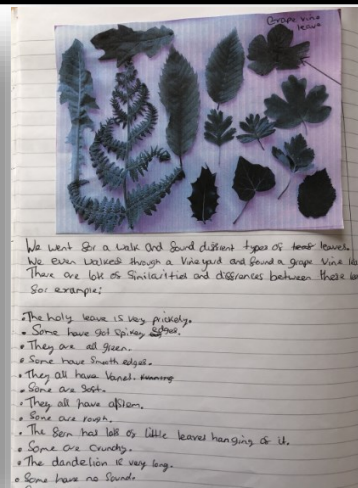 Grape vine
leave
We went for a walk and found different types of leaves.
We even walked through a Vineyard and found a grape Vine
There are lots of Similarities and differences between these
for example;
• The holy leave is very prickely.
• Some have got Spikey edges.
• They are all green.
• Some have Smoth edges.
• They all have Vanes.
• Some are soft.
• They all have a Stem.
• Some are rough.
• The fern has lots of little leaves hanging of it.
• Some are Crunchy.
• The dandelion is very long.
• Some have no Sound.